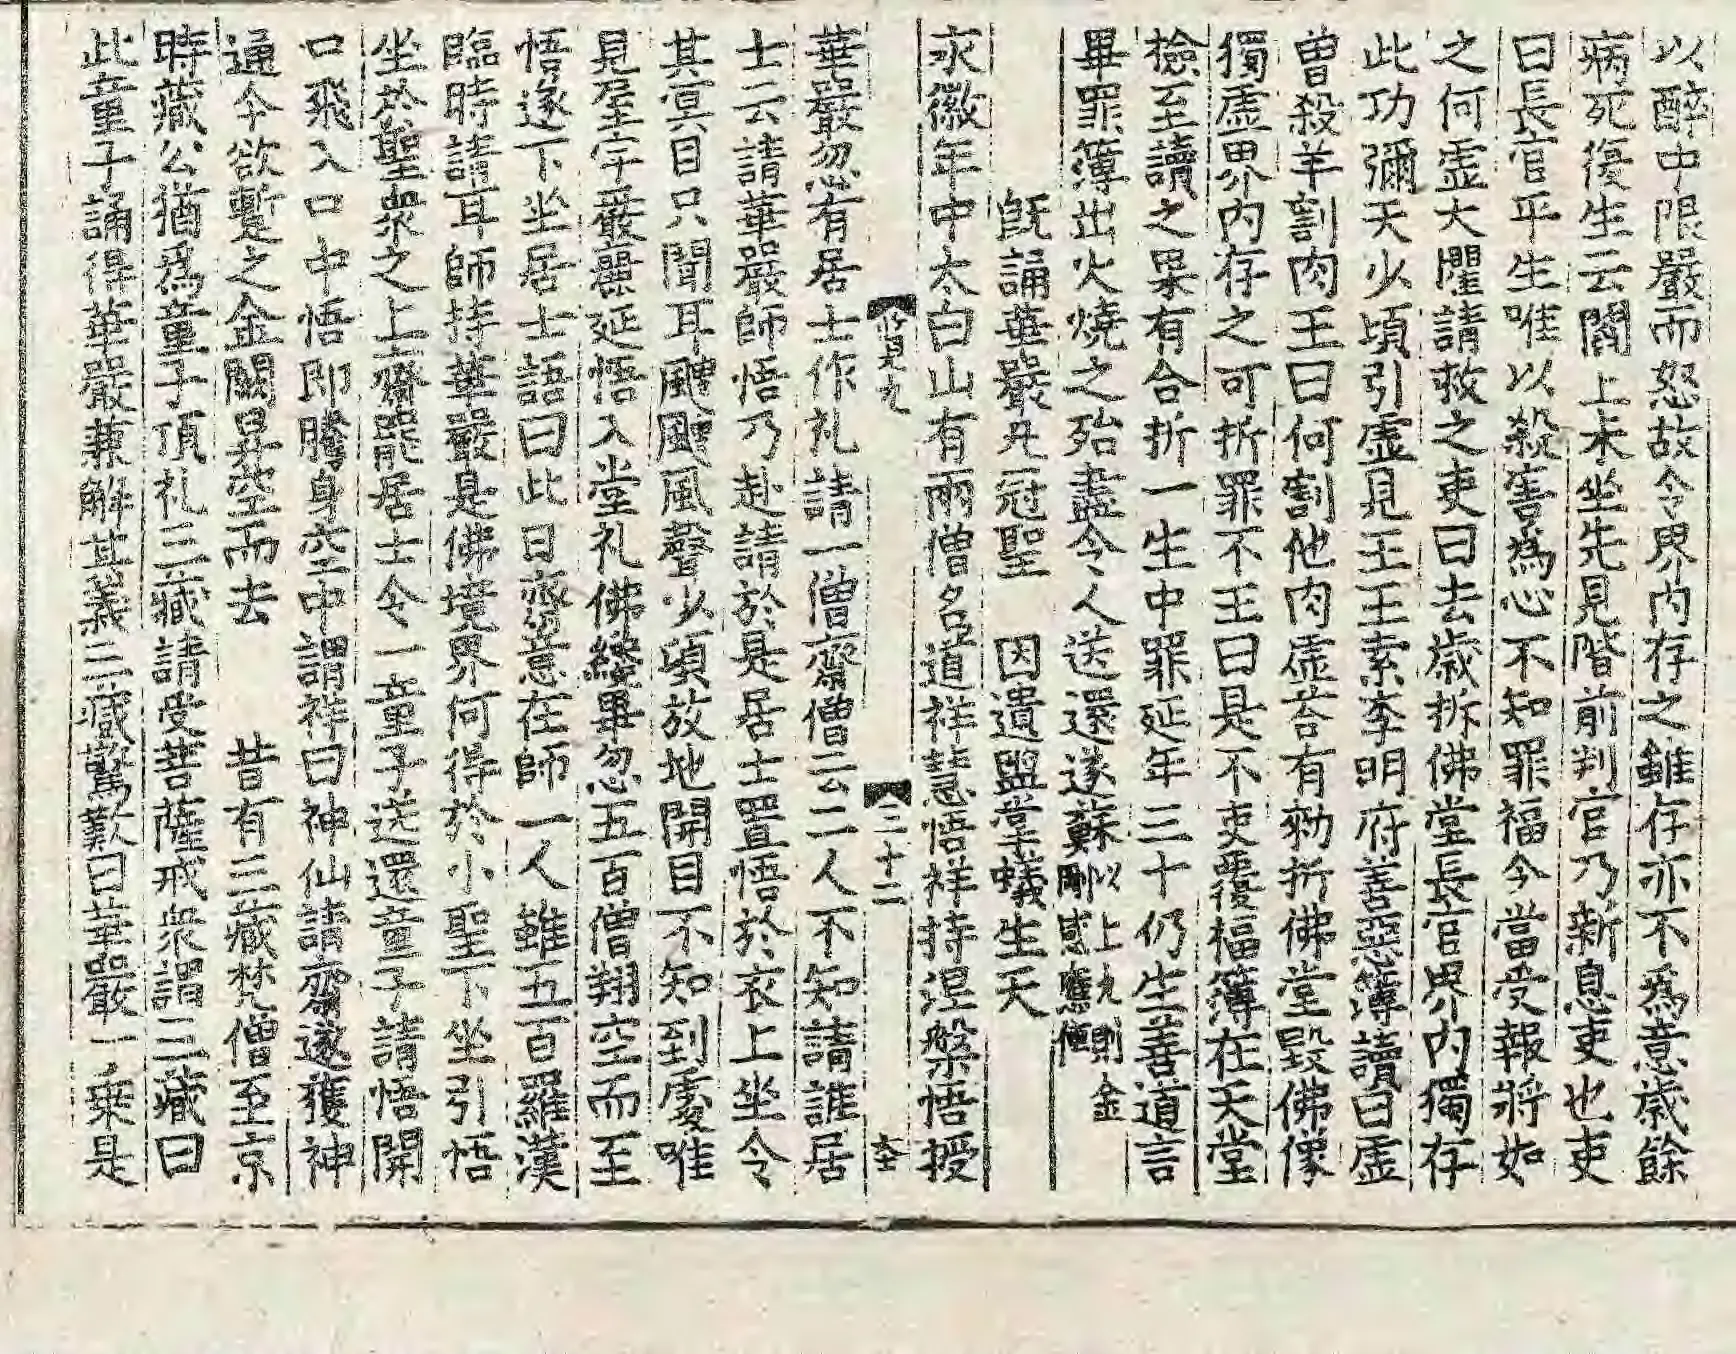 以醉中限嚴而怒故令界內存之雖存亦不爲意歲餘
病死復生云閻上未坐先見階前判官乃新息吏也吏
曰長官平生唯以殺害為心不知罪福今當受報將如
之何虛大懼請救之吏曰去歲拆佛堂長官界內獨存
此功彌天少頃引虛見王王索李明府善惡簿讀曰虛
曾殺羊割肉王曰何割他肉虛荅有勑折佛堂毀佛像
獨虛界內存之可折罪不王曰是不吏覆福簿在天堂
撿至讀之果有合折一生中罪延年三十仍生善道言
畢罪簿出火燒之殆盡令人送還遂蘇以上九則金剛感應傳
旣誦華嚴凡冠聖 因遺盥掌蟻生天
永徽年中太白山有兩僧名道祥慧悟祥持涅槃悟授
三十二
華嚴忽有居士作礼請一僧齋僧云二人不知請誰居
士云請華嚴師悟乃赴請於是居士置悟於衣上坐令
其冥目只聞耳颼颼風聲少頃放地開目不知到處唯
見堂宇嚴麗延悟入堂礼佛纔畢忽五百僧翔空而至
悟遂下坐居士語曰此日齋意在師一人雖五百羅漢
臨時請耳師持華嚴是佛境界何得於小聖下坐引悟
坐於聖衆之上齋罷居士令一童子送還童子請悟開
口飛入口中悟即騰身空中謂祥曰神仙請齋遂獲神
通今欲暫之金闕昇空而去 昔有三藏梵僧至京
時藏公猶爲童子頂礼三藏請受菩薩戒衆謂三藏曰
此童子誦得華嚴兼解其義三藏驚歎曰華嚴一乘是